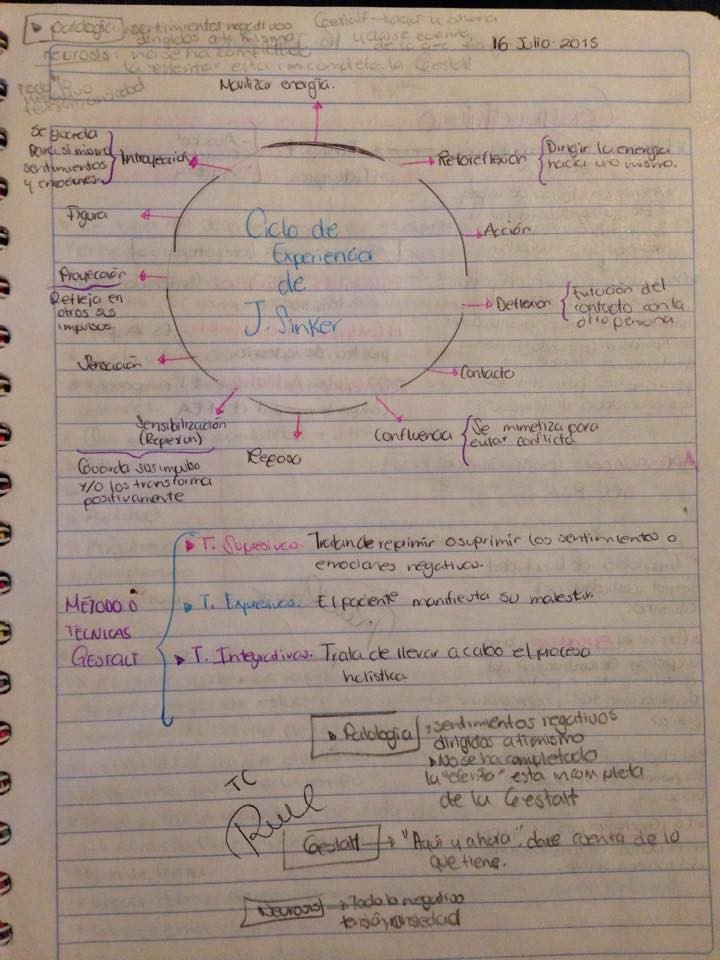 ▸ Patología: sentimientos negativos
dirigidos a ti mismo
Gestalt → aquí y ahora
y darse cuenta
de lo que
16 · Julio · 2015
neurosis: no se ha completado
la está incompleta la Gestalt
Todo lo
negativo
tensión, ansiedad
Movilizar energía.
Se guarda
para si mismo
sentimientos
y emociones.
Introyección
Retoreflexión
Dirigir la energía
hacia uno mismo.
Figura
Acción
Ciclo de
Experiencia
de
J. Sinker
Proyección
Refleja en
otros sus
impulsos.
Deflexión
contacto con la
otra persona
Sensación
Contacto
Sensibilización
(Represión)
Guarda sus impulso
y/o los transforma
positivamente
Reposo
Confluencia
Se mimetiza para
evitar conflicto
MÉTODO Ó
TÉCNICAS
GESTALT
▸ T. Supresivas. Tratan de reprimir o suprimir los sentimientos o
emociones negativos.
▸ T. Expresivas. El paciente manifiesta su malestar.
▸ T. Integrativas. Trata de llevar a cabo el proceso
holístico.
▸ Patología: sentimientos negativos
dirigidos a ti mismo
▸ No se ha completado
la está incompleta
de la Gestalt
TC
Gestalt → "Aquí y ahora", darse cuenta de lo
que tiene.
Neurosis → Todo lo negativo
tensión, ansiedad